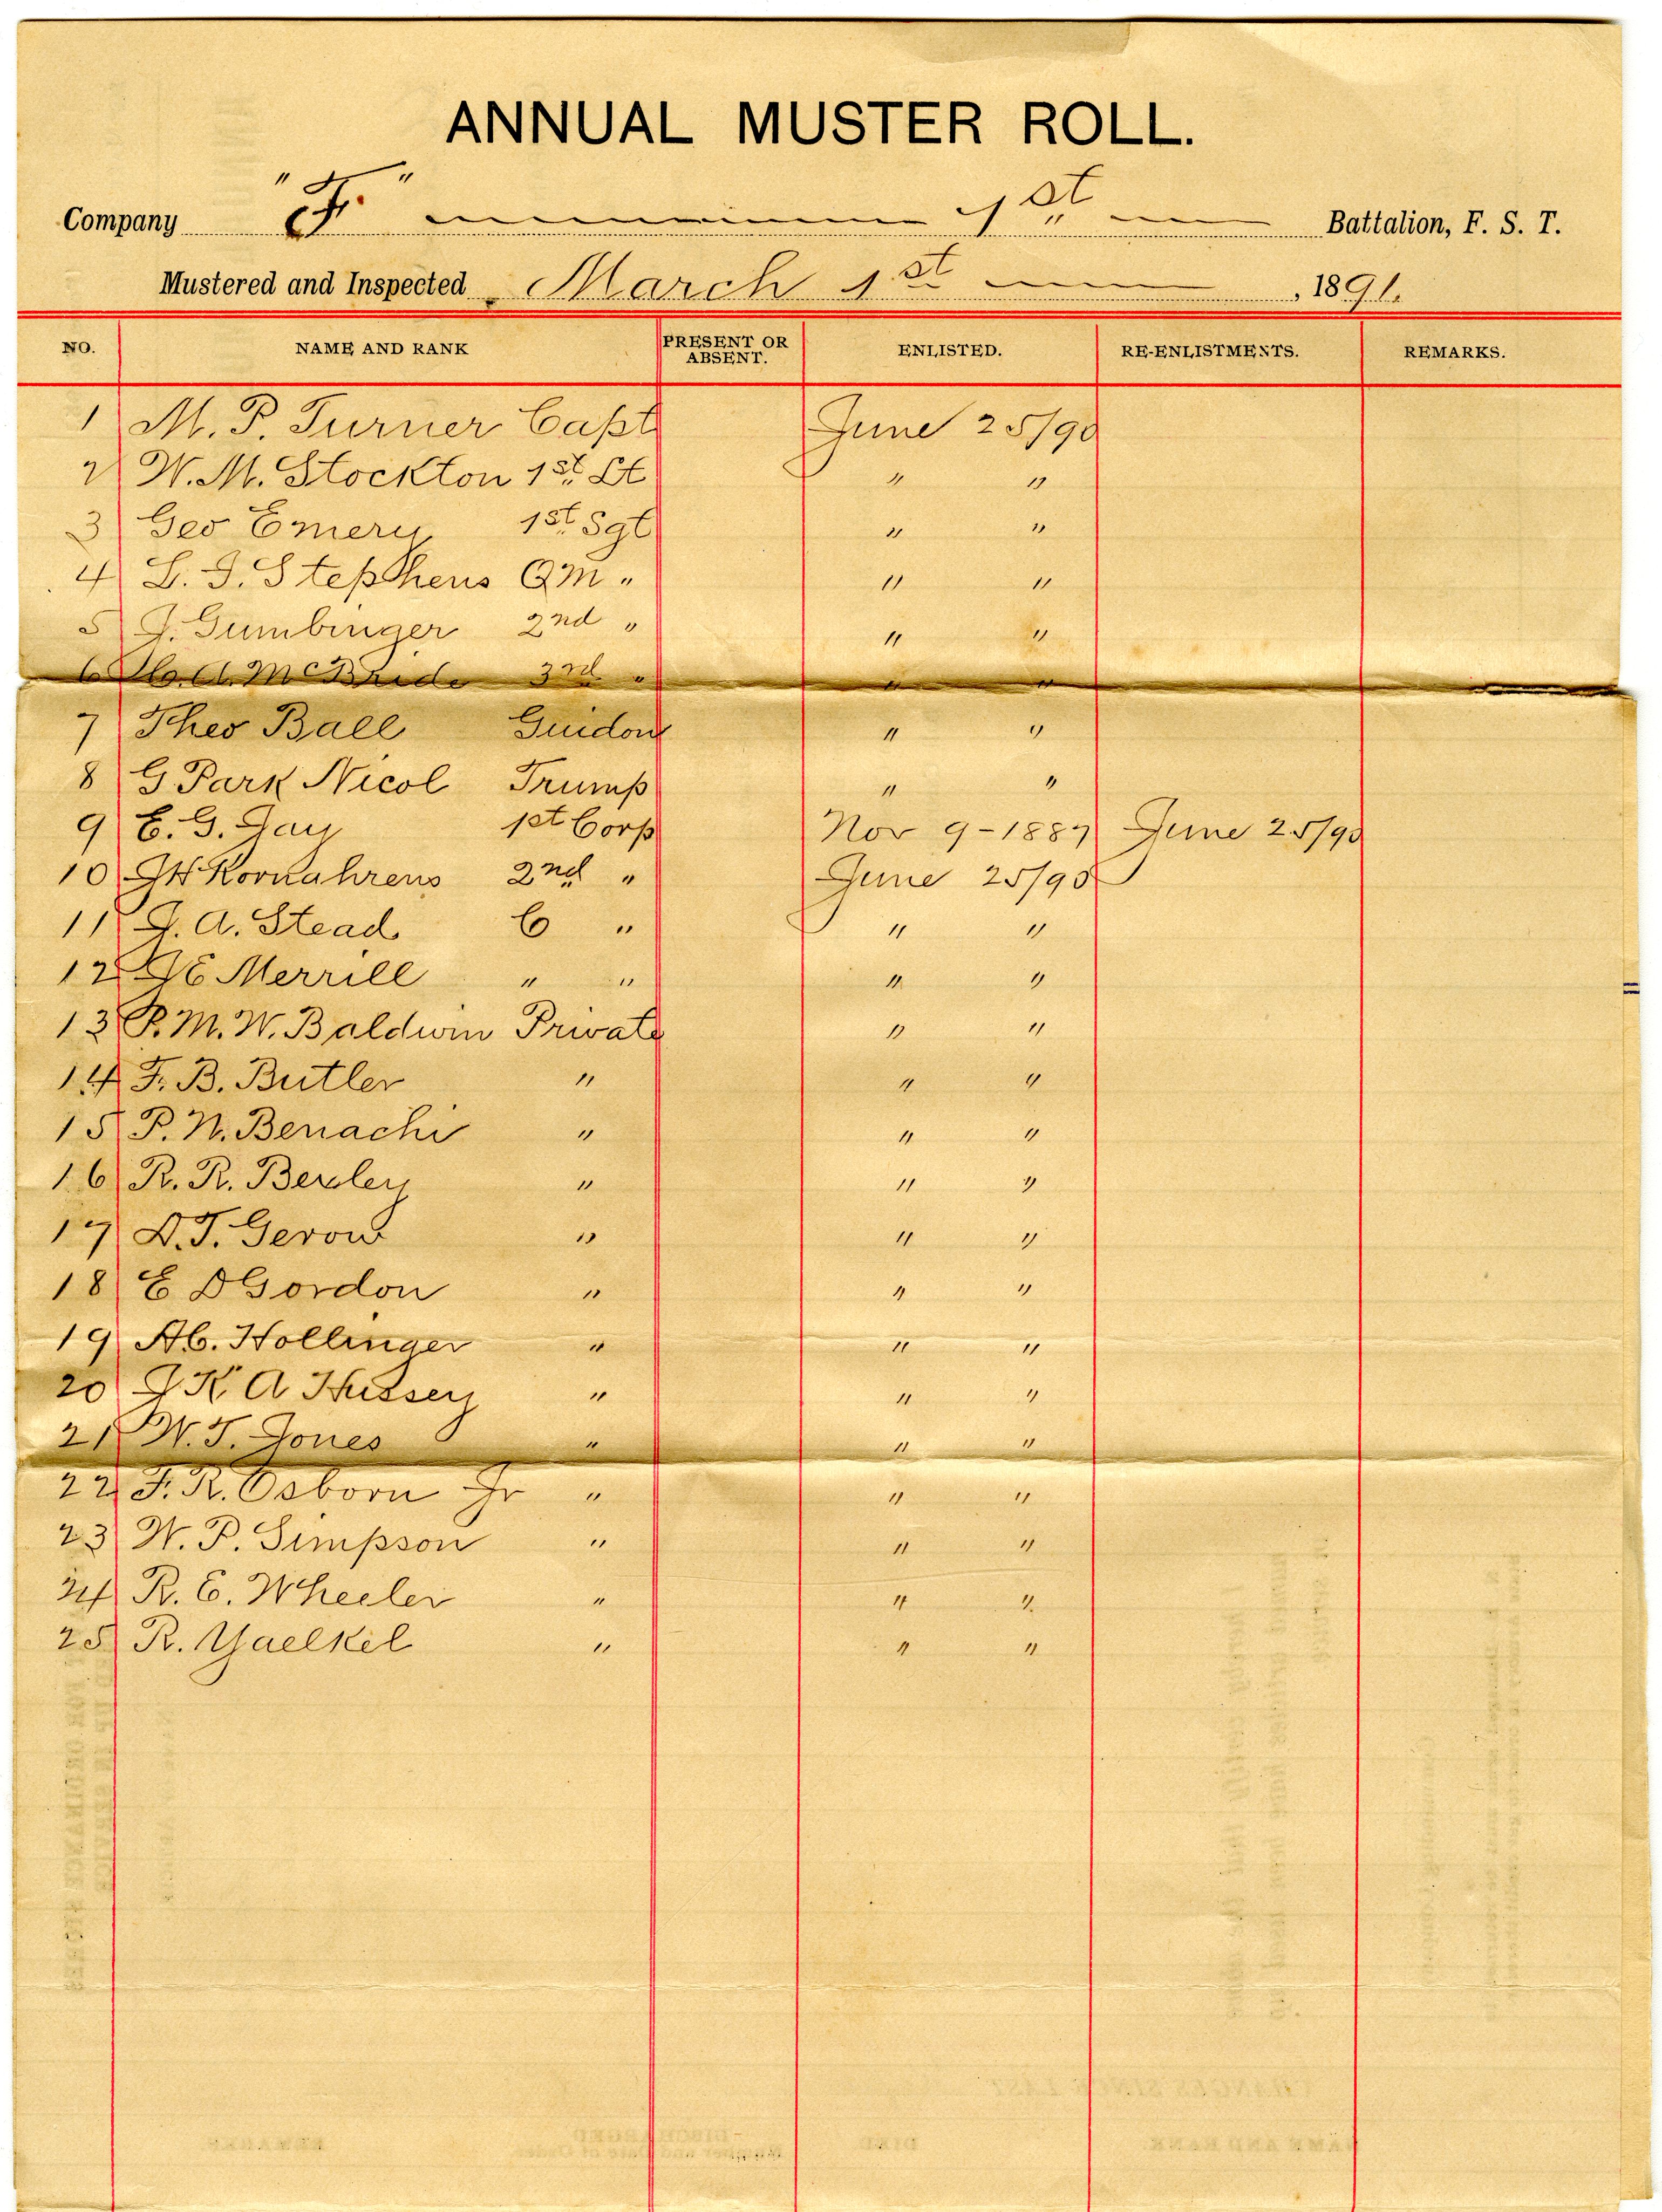 ANNUAL MUSTER ROLL.
Company "F." 1st Battalion, F. S. T.
Mustered and Inspected March 1st, 1891.
NO. NAME AND RANK PRESENT OR ABSENT. ENLISTED. RE-ENLISTMENTS. REMARKS.
1 M. P. Turner Capt June 25/90
2 W. M. Stockton 1st Lt " "
3 Geo Emery 1st Sgt " "
4 L. I. Stephens QM " " "
5 J. Gumbinger 2nd " " "
6 A. McBride 3rd " " "
7 Theo Ball Guidon " "
8 G Park Nicol Trump " "
9 C. G. Gay 1st Corp Nov 9-1887 June 25/90
10 JH Kornahrens 2nd " June 25/90
11 J. A. Stead C " " "
12 Merrill " " " "
13 P. M. W. Baldwin Private " "
14 F. B. Butler " " "
15 P. N. Benachi " " "
16 R. R. Bexley " " "
17 D. T. Gerow " " "
18 E D Gordon " " "
19 Hollinger " " "
20 J K A Hussey " " "
21 W. T. Jones " " "
22 F. R. Osborn Jr " " "
23 W. P. Simpson " " "
24 R. C. Wheeler " " "
25 R. Yaelkel " " "